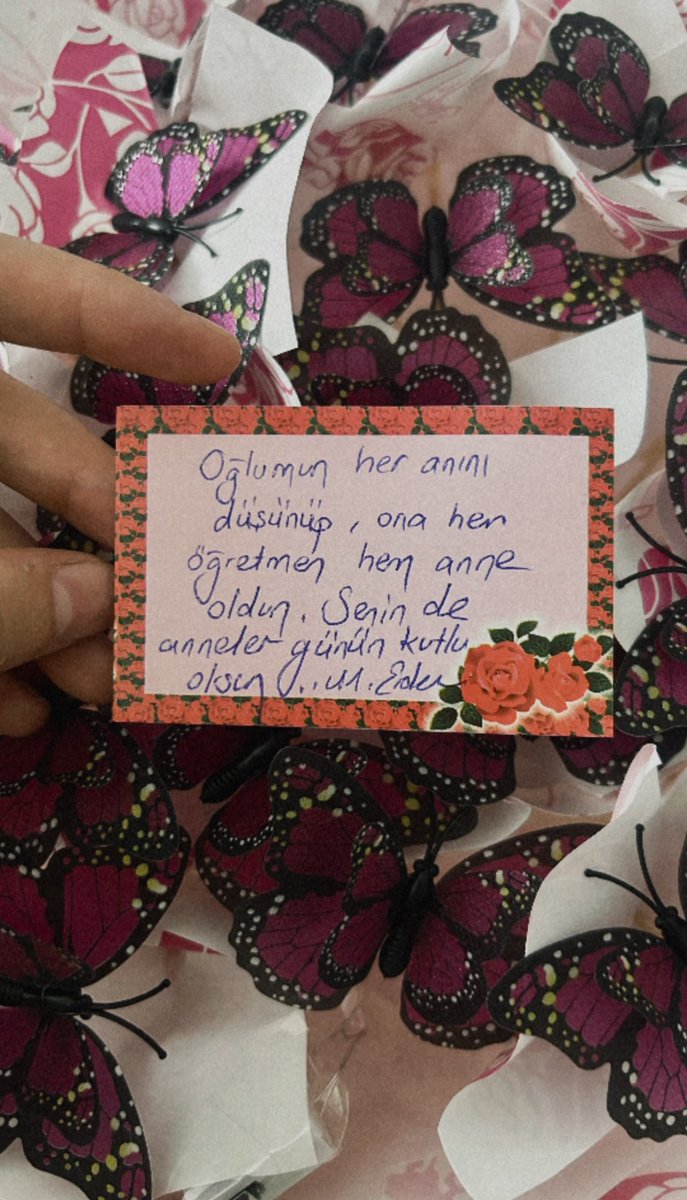 Oğlumun her anını
düşünüp, ona hem
öğretmen hem anne
oldun. Senin de
anneler günün kutlu
olsun